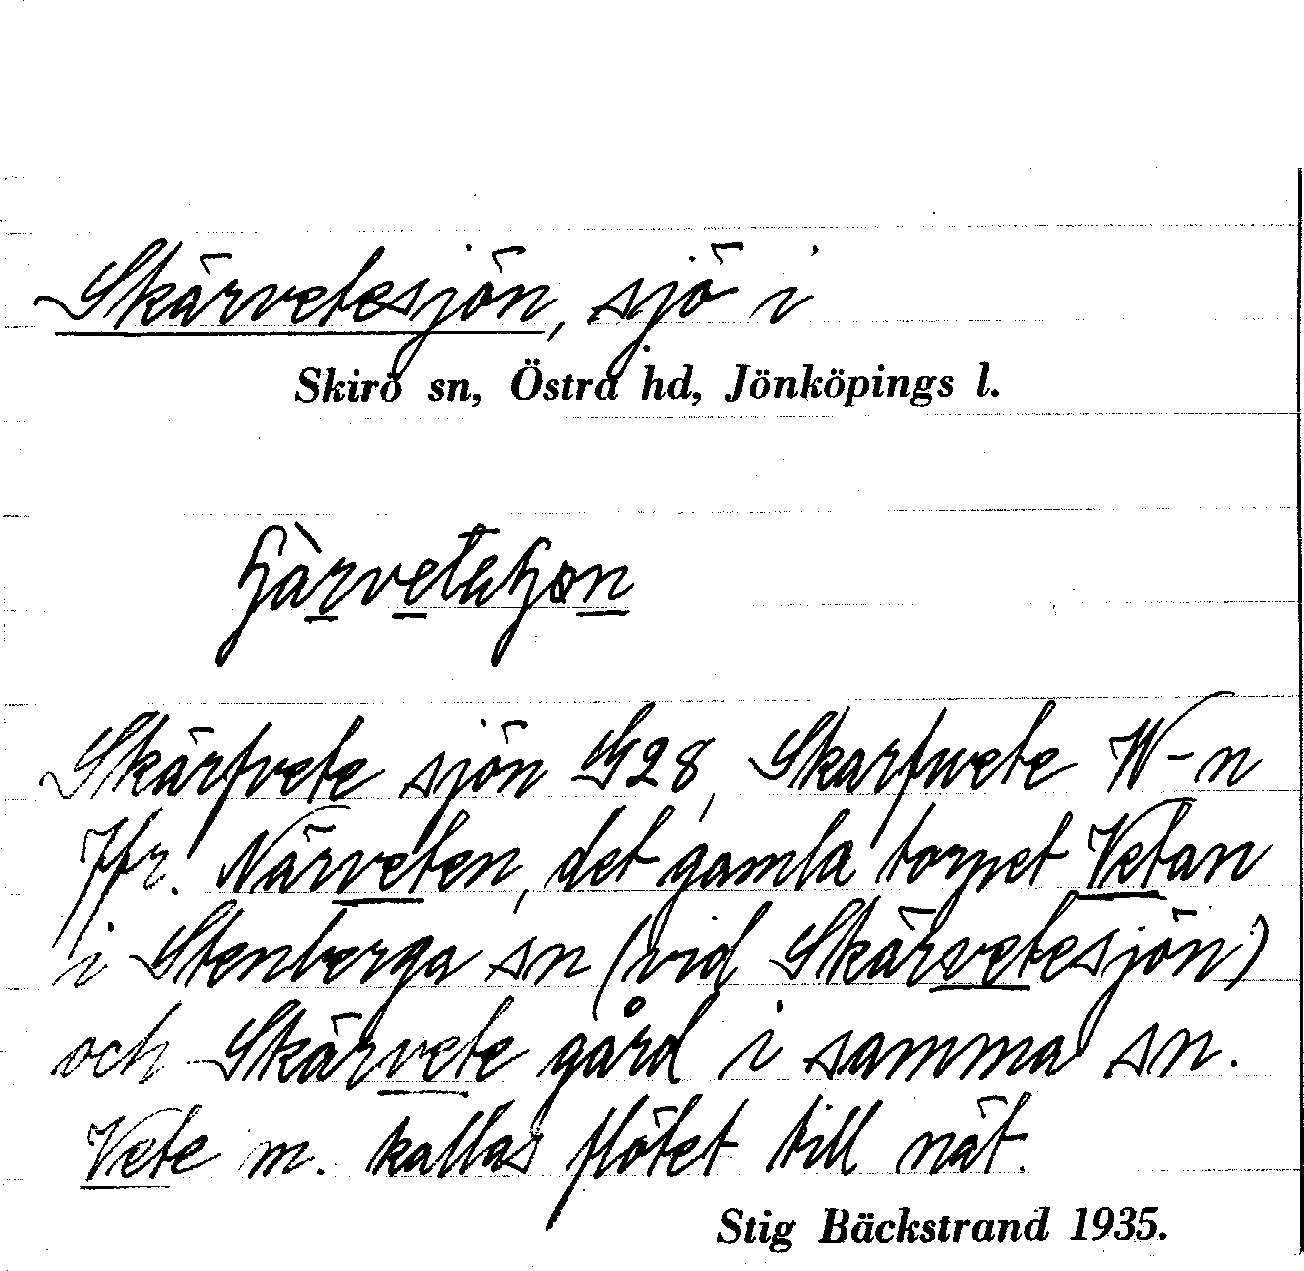 Skärvetesjön, sjö i
Skirö sn, Östra hd, Jönköpings l.
Skärfvete sjön G28, Skarfwete W-n
Jfr. Närveten, det gamla torpet Vetan
i Stenberga sn (vid Skärvetesjön)
och Skärvete gård i samma sn.
Vete m. kallas flötet till nät.
Stig Bäckstrand 1935.